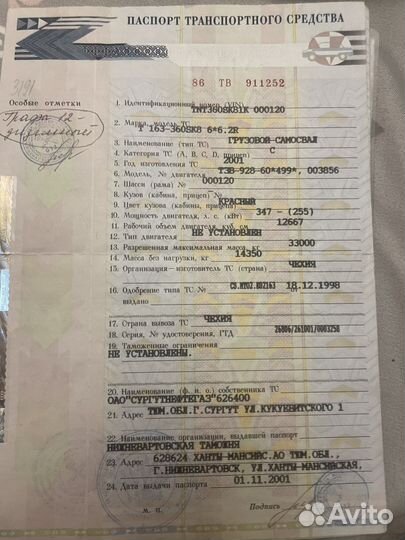 ПАСПОРТ ТРАНСПОРТНОГО СРЕДСТВА
86 ТВ 911252
3191
Особые отметки
Графа 12 -
дизельный
1. Идентификационный номер (VIN) TNT360SK81K 000120
2. Марка, модель ТС Т 163-360SK8 6*6.2R
3. Наименование (тип ТС) ГРУЗОВОЙ-САМОСВАЛ
4. Категория ТС (А, В, С, D, прицеп) С
5. Год изготовления ТС 2001
6. Модель, № двигателя ТЗВ-928-60*499*, 003856
7. Шасси (рама) № 000120
8. Кузов (кабина, прицеп) №
9. Цвет кузова (кабины, прицепа) КРАСНЫЙ
10. Мощность двигателя, л. с. (кВт) 347 - (255)
11. Рабочий объем двигателя, куб. см 12667
12. Тип двигателя НЕ УСТАНОВЛЕН
13. Разрешенная максимальная масса, кг 33000
14. Масса без нагрузки, кг 14350
15. Организация-изготовитель ТС (страна) ЧЕХИЯ
16. Одобрение типа ТС № от 18.12.1998
выдано
17. Страна вывоза ТС ЧЕХИЯ
18. Серия, № удостоверения, ГТД 26806/261001/0003258
19. Таможенные ограничения
НЕ УСТАНОВЛЕНЫ.
20. Наименование (ф. и. о.) собственника ТС
ОАО"СУРГУТНЕФТЕГАЗ"626400
21. Адрес ТЮМ.ОБЛ.Г.СУРГУТ УЛ.КУКУЕВИТСКОГО 1
22. Наименование организации, выдавшей паспорт
НИЖНЕВАРТОВСКАЯ ТАМОЖНЯ
23. Адрес 628624 ХАНТЫ-МАНСИЙС.АО ТЮМ.ОБЛ.,
Г.НИЖНЕВАРТОВСК, УЛ.ХАНТЫ-МАНСИЙСКАЯ,
24. Дата выдачи паспорта 01.11.2001
М. П. Подпись
Avito